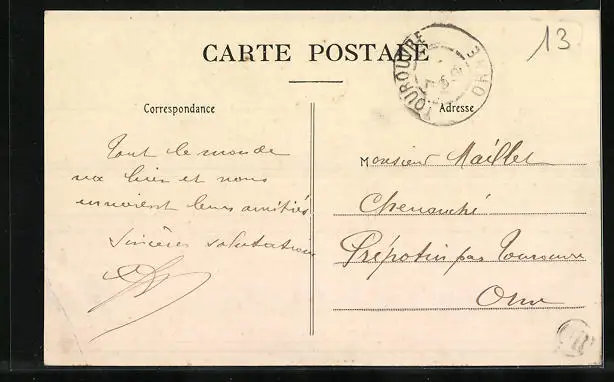 CARTE POSTALE
13
TOUROUVRE
ORNE
Correspondance
Adresse
Tout le monde
va bien et nous
envoient leurs amitiés
Sincères salutations
Monsieur Maillet
Prépotin par Tourouvre
Orne